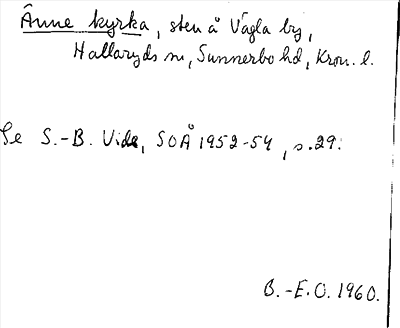 Ånne kyrka, sten å Vägla by,
Hallaryds sn, Sunnerbo hd, Kron. l.
Se S.-B. Vide, SOÅ 1952-54, s.29.
B.-E.O. 1960.